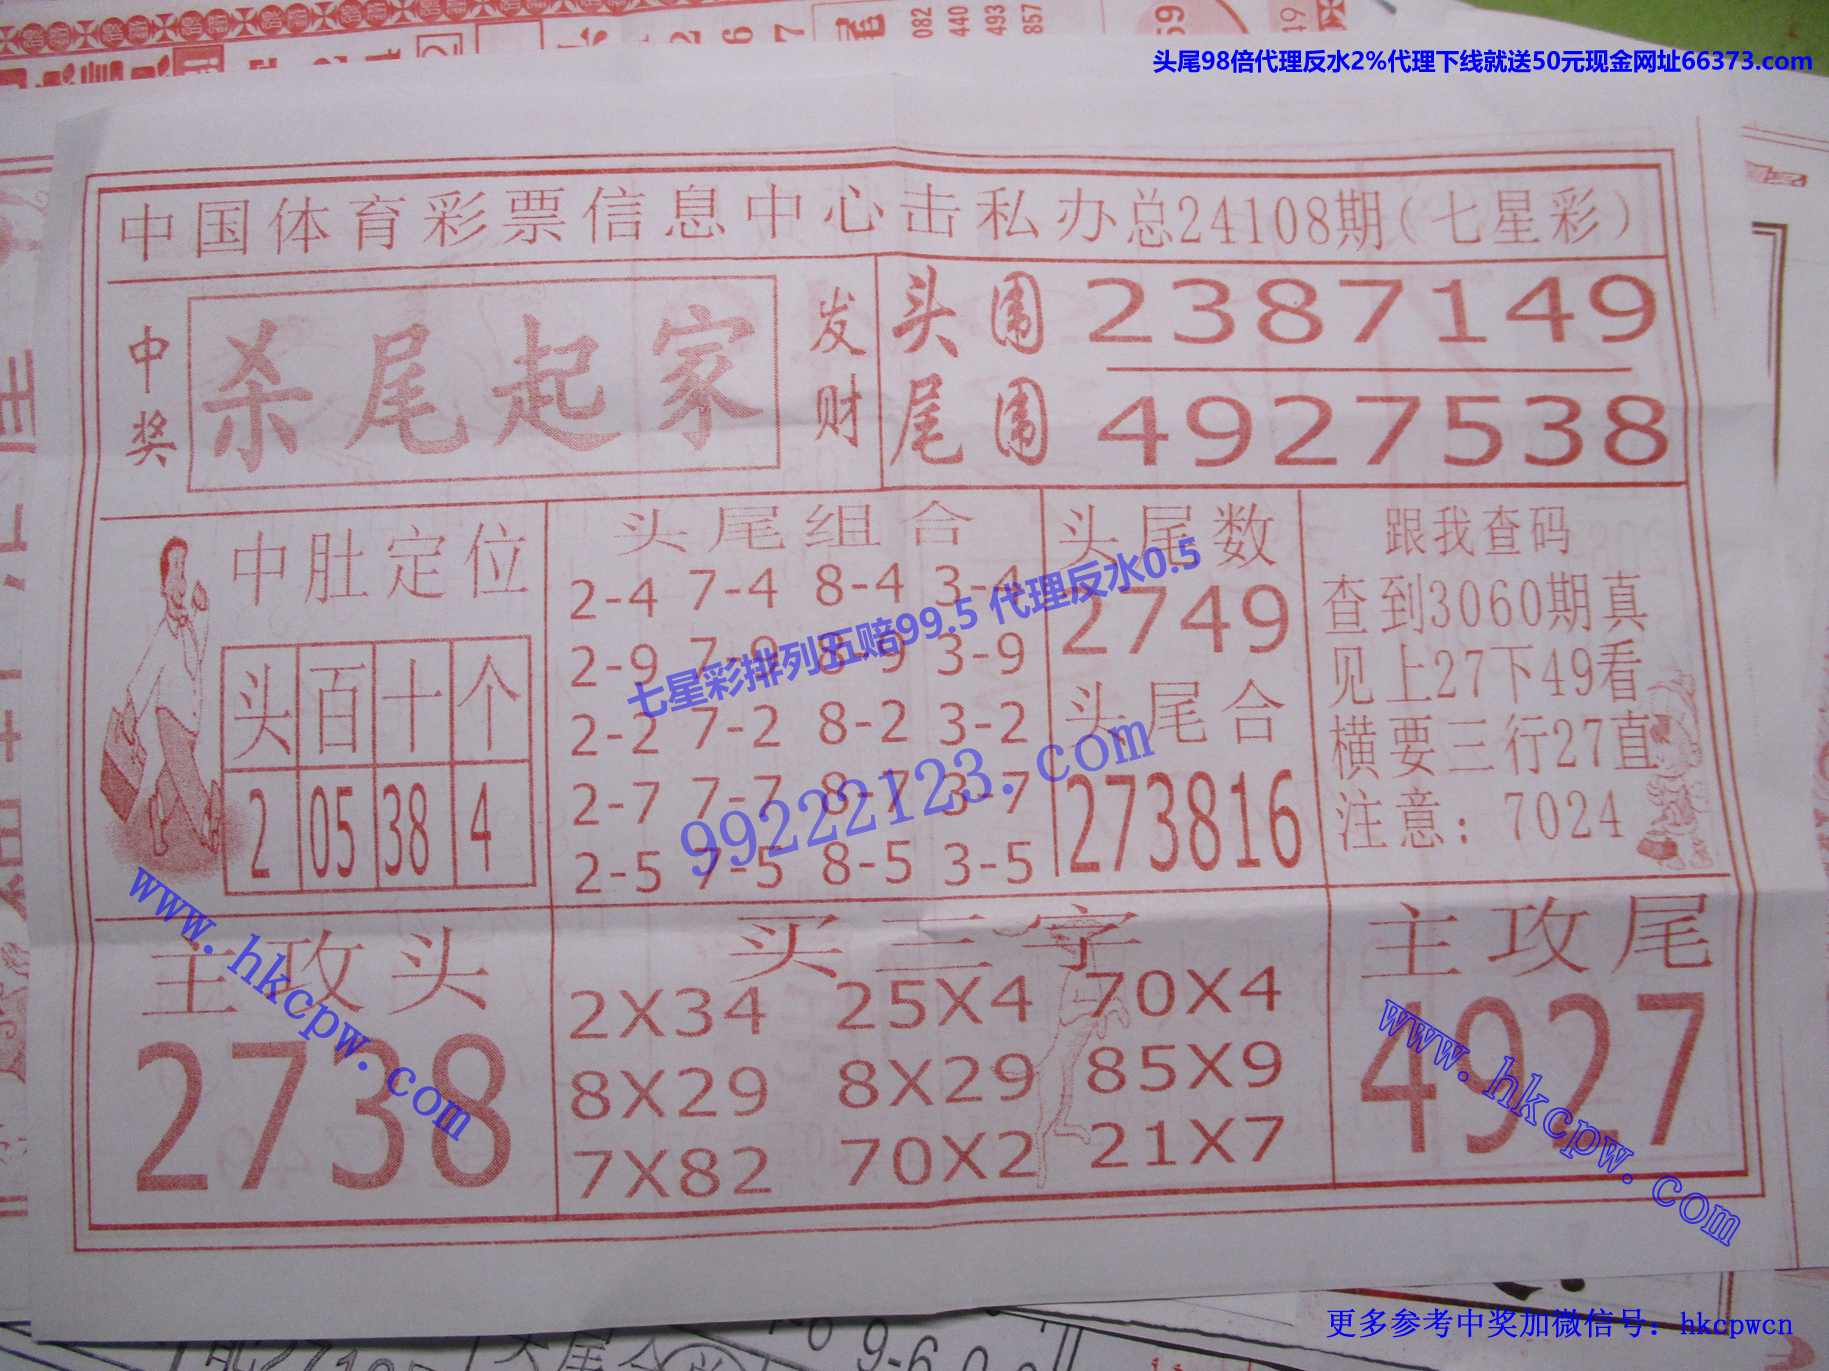 082
440
493
857
头尾98倍代理反水2%代理下线就送50元现金网址66373.com
中国体育彩票信息中心击私办总24108期(七星彩)
中奖
杀尾起家
发财
头围 2387149
尾围 4927538
中肚定位
头 百 十 个
2 05 38 4
头尾组合
2-4 7-4 8-4 3-4
2-9 7-9 8-9 3-9
2-2 7-2 8-2 3-2
2-7 7-7 8-7 3-7
2-5 7-5 8-5 3-5
头尾数
2749
头尾合
273816
跟我查码
查到3060期真
见上27下49看
横要三行27直
注意：7024
七星彩排列五赔99.5 代理反水0.5
99222123.com
主攻头
2738
买三字
2X34 25X4 70X4
8X29 8X29 85X9
7X82 70X2 21X7
主攻尾
4927
www.hkcpw.com
www.hkcpw.com
更多参考中奖加微信号：hkcpwcn